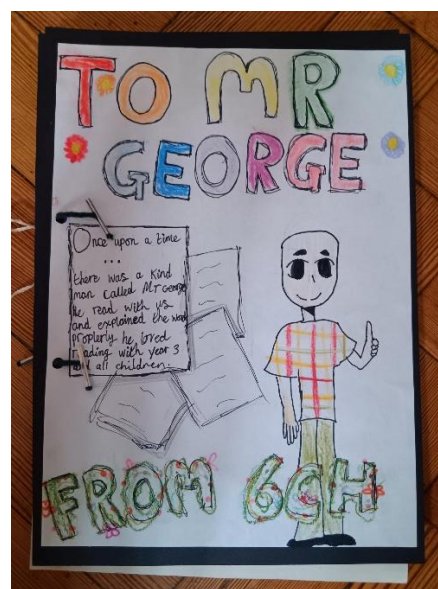 TO MR
GEORGE
Once upon a time
...
there was a kind
man called Mr George
He read with us
and explained the word
properly he loved
reading with year 3
and all children.
FROM 6CH